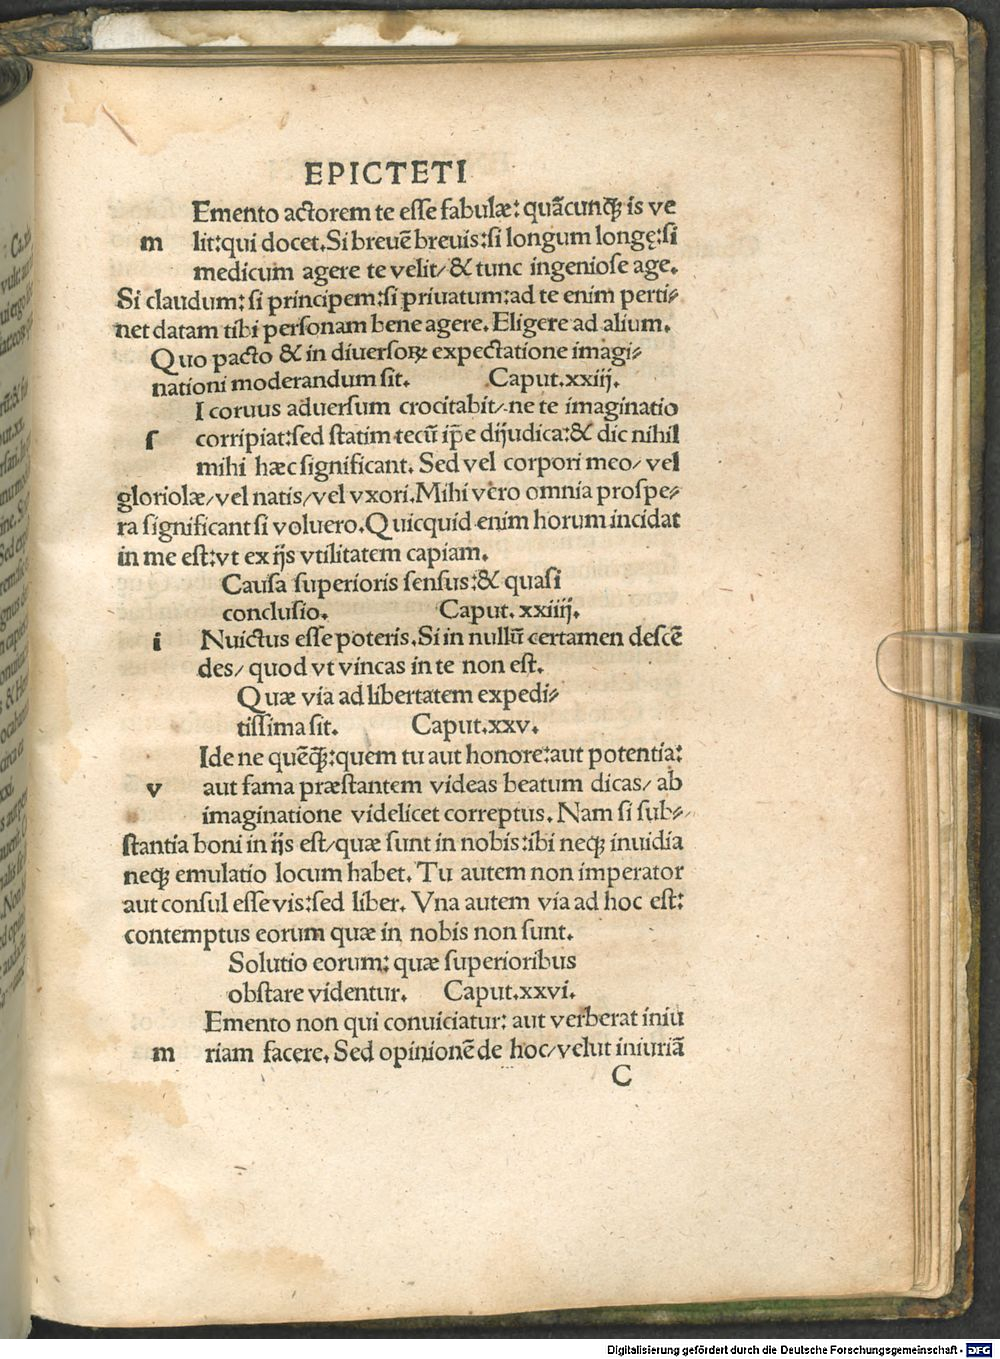 EPICTETI
Emento actorem te eſſe fabulæ: quãcunqꝫ is ve
m lit: qui docet. Si breuẽ breuis: ſi longum longę: ſi
medicum agere te velit/ & tunc ingenioſe age.
Si claudum: ſi principem: ſi priuatum: ad te enim perti⸗
net datam tibi perſonam bene agere. Eligere ad alium.
Quo pacto & in diuerſoꝝ expectatione imagi⸗
nationi moderandum ſit. Caput. xxiij.
I coruus aduerſum crocitabit/ ne te imaginatio
ſ corripiat: ſed ſtatim tecũ ip̃e dijudica: & dic nihil
mihi hæc ſignificant. Sed vel corpori meo/ vel
gloriolæ/ vel natis/ vel vxori. Mihi vero omnia proſpe⸗
ra ſignificant ſi voluero. Quicquid enim horum incidat
in me eſt: vt ex ijs vtilitatem capiam.
Cauſa ſuperioris ſenſus: & quaſi
concluſio. Caput. xxiiij.
i Nuictus eſſe poteris. Si in nullũ certamen deſcẽ
des/ quod vt vincas in te non eſt.
Quæ via ad libertatem expedi⸗
tiſſima ſit. Caput. xxv.
Ide ne quẽqꝫ: quem tu aut honore: aut potentia:
v aut fama præſtantem videas beatum dicas/ ab
imaginatione videlicet correptus. Nam ſi ſub⸗
ſtantia boni in ijs eſt/ quæ ſunt in nobis: ibi neqꝫ inuidia
neqꝫ emulatio locum habet. Tu autem non imperator
aut conſul eſſe vis: ſed liber. Vna autem via ad hoc eſt:
contemptus eorum quæ in nobis non ſunt.
Solutio eorum: quæ ſuperioribus
obſtare videntur. Caput. xxvi.
Emento non qui conuiciatur: aut verberat iniu
m riam facere. Sed opinionẽ de hoc/ velut iniuriã
C
Digitalisierung gefördert durch die Deutsche Forschungsgemeinschaft - DFG